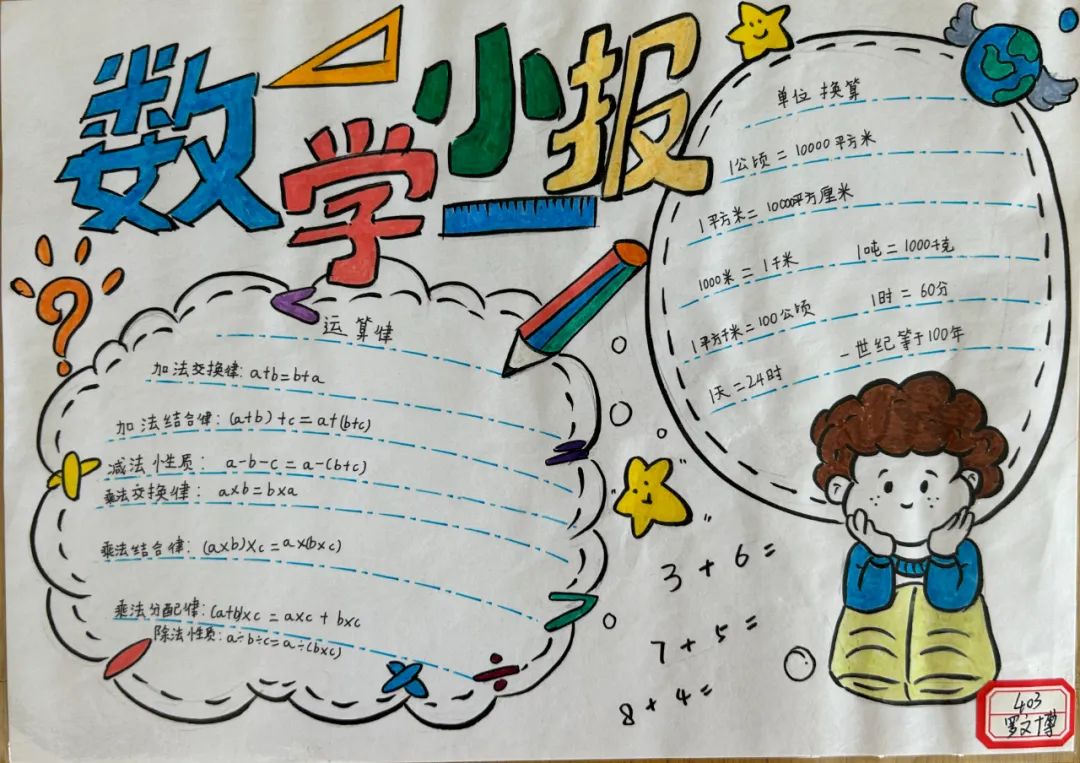 数学小报
运算律
加法交换律: a+b=b+a
加法结合律: (a+b)+c=a+(b+c)
减法性质: a-b-c=a-(b+c)
乘法交换律: a×b=b×a
乘法结合律: (a×b)×c=a×(b×c)
乘法分配律: (a+b)×c=a×c+b×c
除法性质: a÷b÷c=a÷(b×c)
单位换算
1公顷=10000平方米
1平方米=10000平方厘米
1000米=1千米 1吨=1000千克
1平方千米=100公顷 1时=60分
1天=24时 一世纪等于100年
3+6=
7+5=
8+4=
403
罗文博